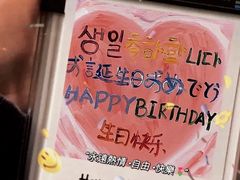 생일축하합니다
お誕生日おめでとう
HAPPY BIRTHDAY
生日快乐
"永遠熱情·自由·快樂"